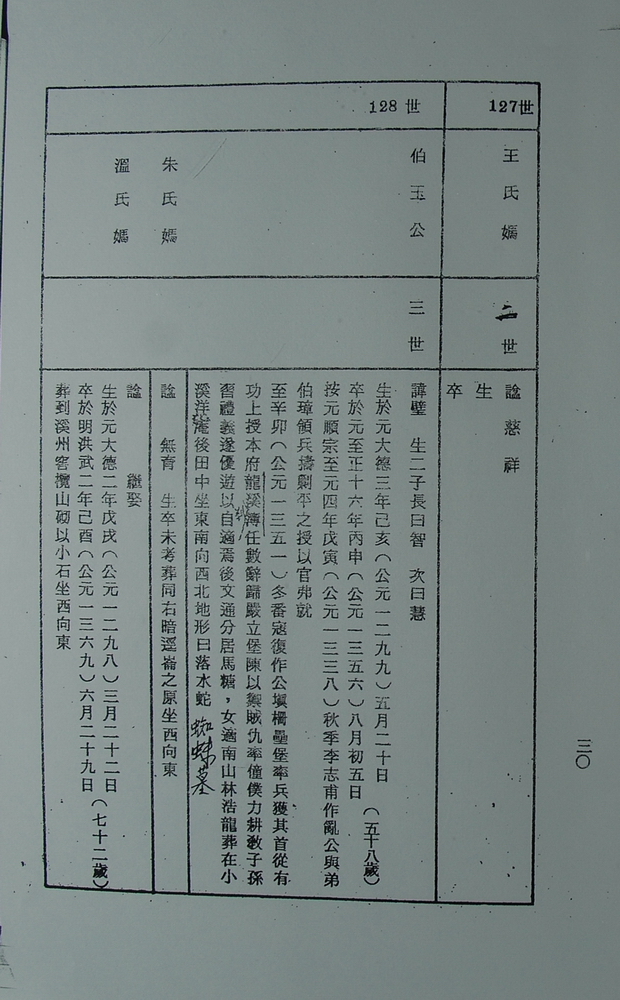 127世
王氏媽
二世
諡慈祥
生
卒
128世
伯玉公
三世
諱璧　生二子長曰智　次曰慧
生於元大德三年己亥（公元一二九九）五月二十日
卒於元至正十六年丙申（公元一三五六）八月初五日（五十八歲）
按元順宗至元四年戊寅（公元一三三八）秋季李志甫作亂公與弟
伯璋領兵擣剿平之授以官弗就
至辛卯（公元一三五一）冬番寇復作公塡柵壘堡率兵獲其首從有
功上授本府龍溪簿任數辭歸嚴立堡陳以禦賊仇率僮僕力耕教子孫
習禮義遂優遊以自適焉後文通分居馬糖，女適南山林浩龍葬在小
溪洋後田中坐東南向西北地形曰落水蛇 蜘蛛墓
朱氏媽
諡　無育　生卒未考葬同右暗逕崙之原坐西向東
溫氏媽
諡　繼娶
生於元大德二年戊戌（公元一二九八）三月二十二日
卒於明洪武二年己酉（公元一三六九）六月二十九日（七十二歲）
葬到溪州窖欖山砌以小石坐西向東
三〇